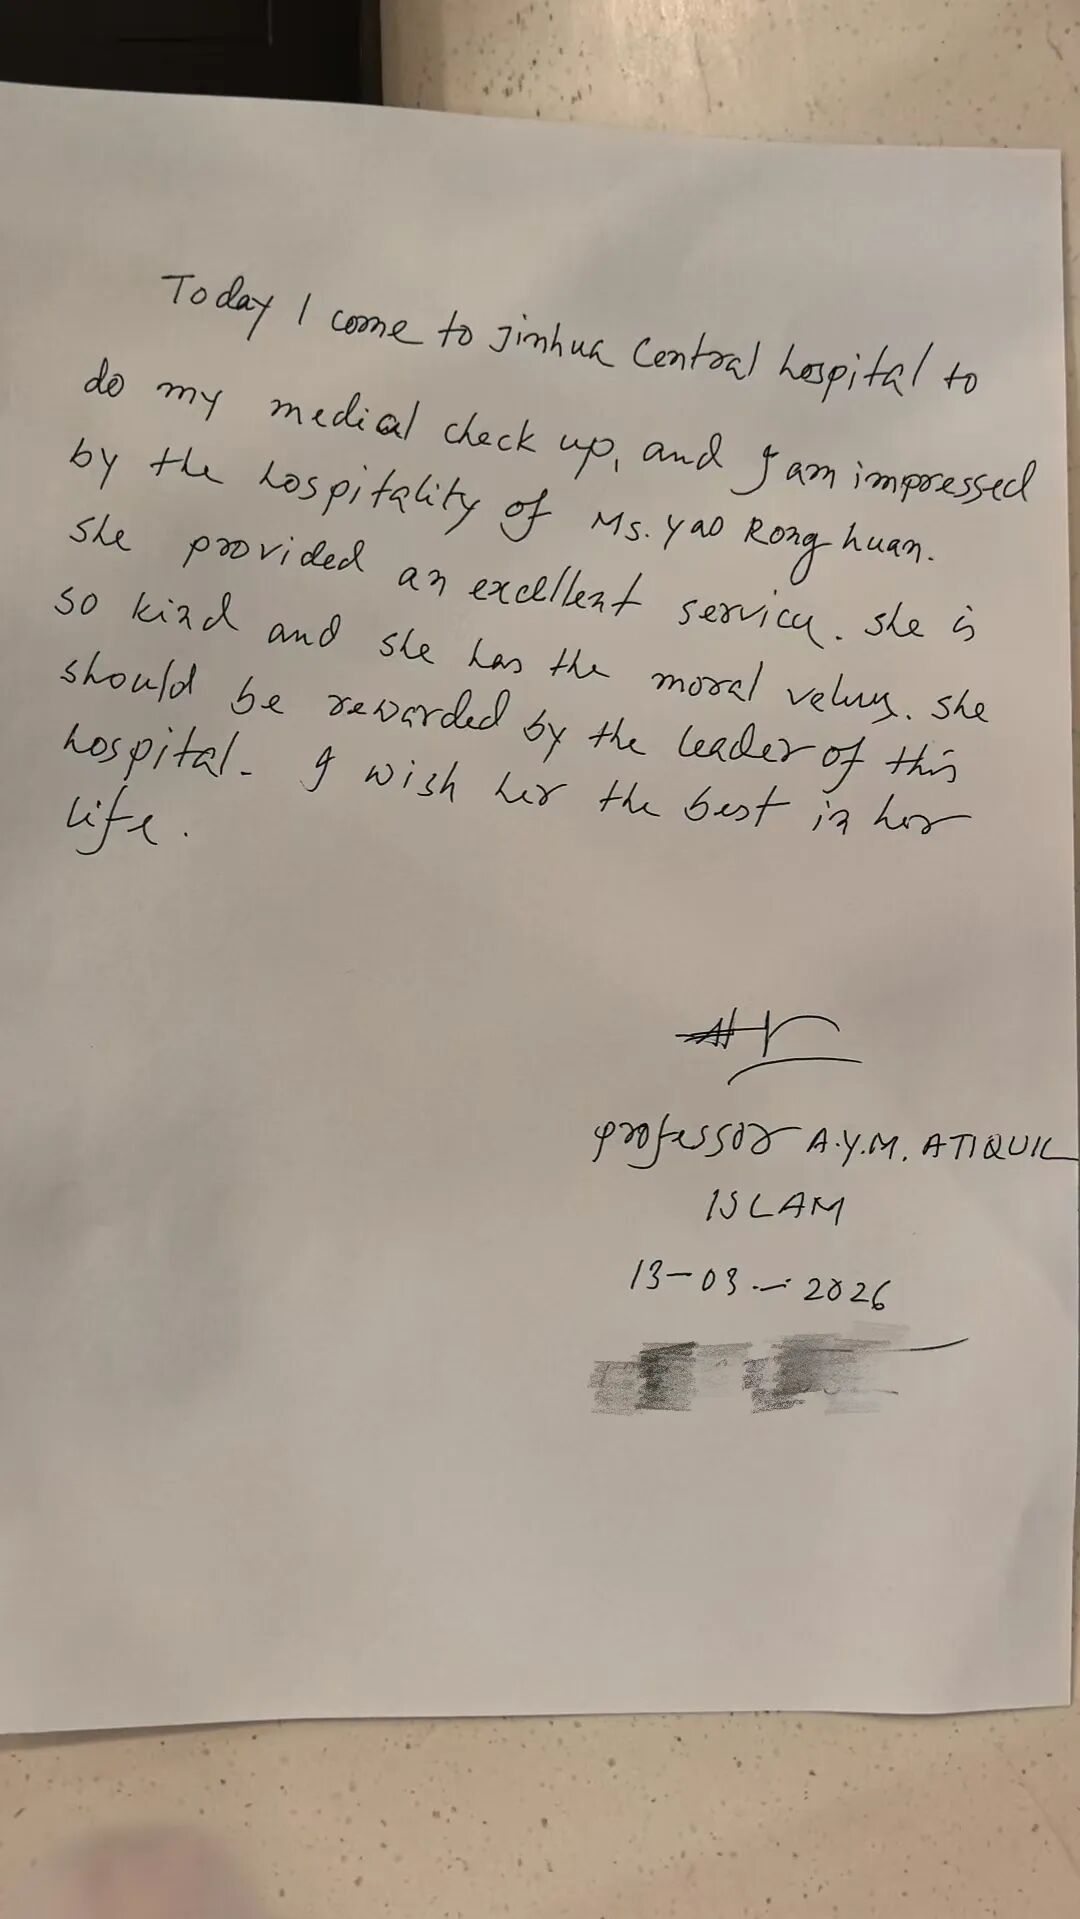 Today I come to Jinhua Central hospital to
do my medical check up, and I am impressed
by the hospitality of Ms. Yao Rong huan.
She provided an excellent service. she is
so kind and she has the moral values. she
should be rewarded by the leader of this
hospital. I wish her the best in her
life.
professor A.Y.M. ATIQUL
ISLAM
13-03-2026